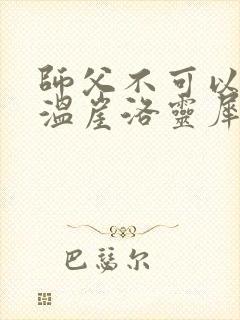 師父不可以
溫崖洛靈犀
巴瑟尔